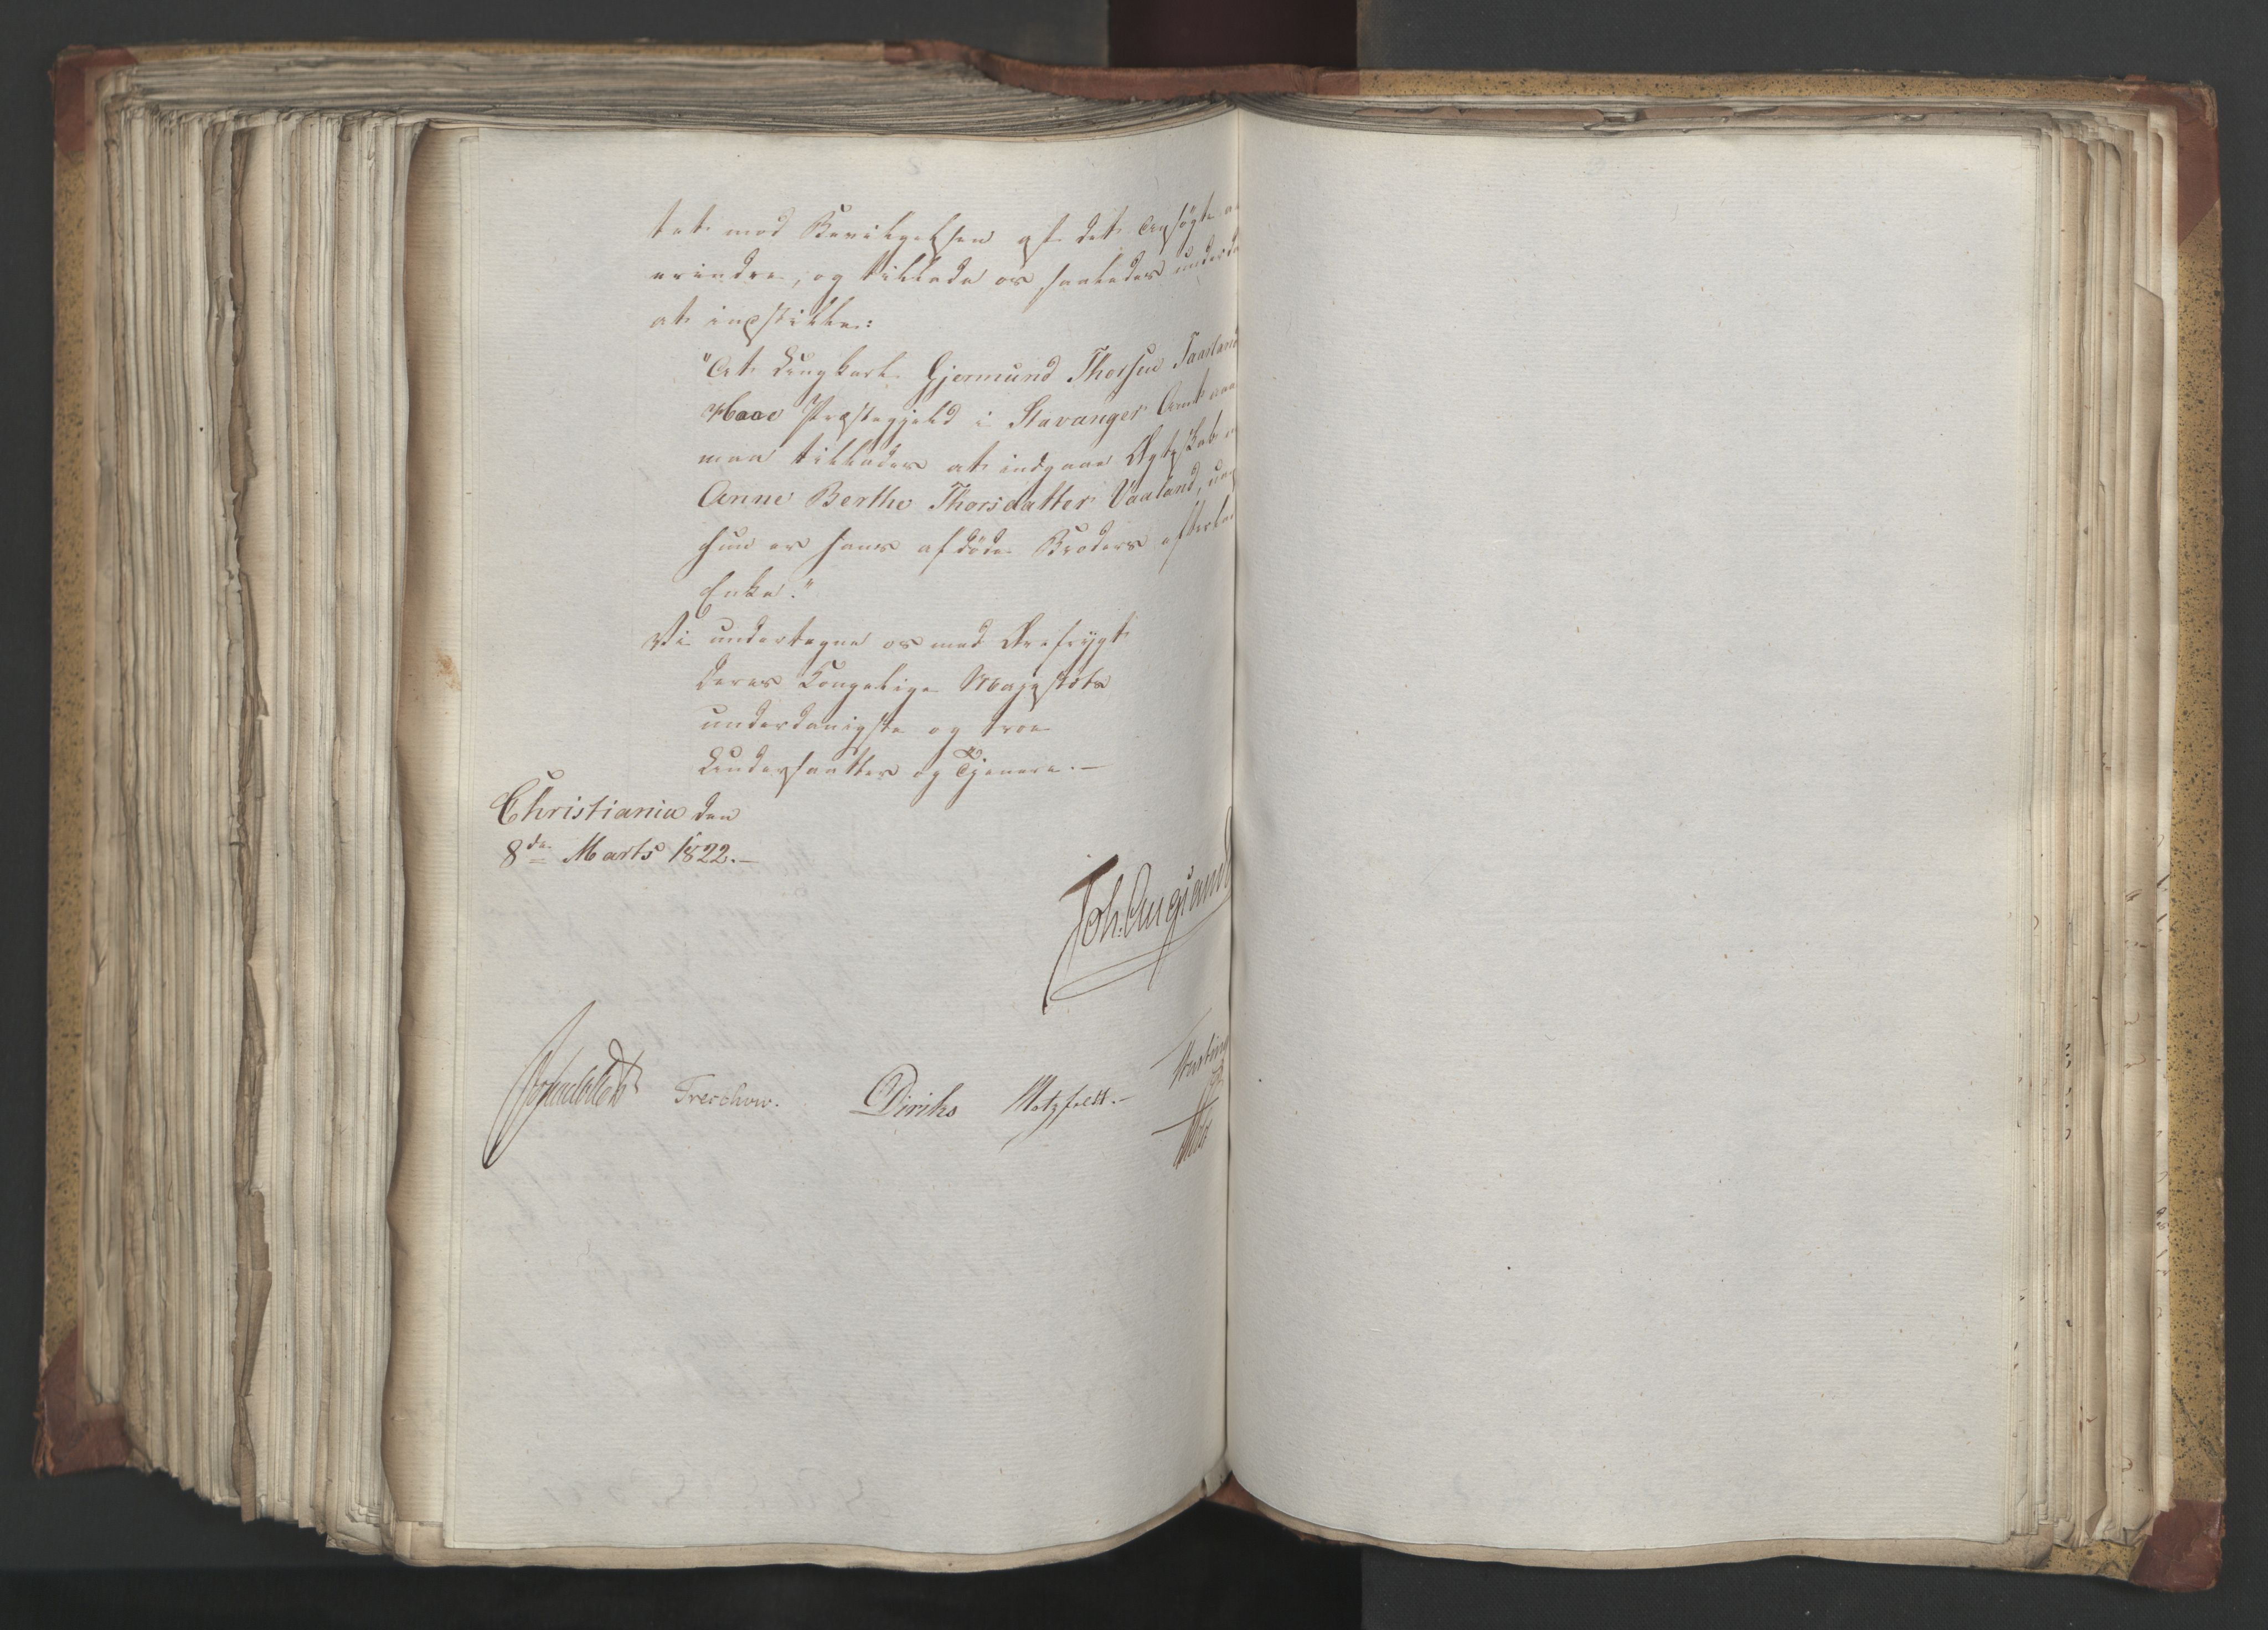 tet mod Bevilgelsen af det Ansøgte
erindre, og tillade os saaledes underd
at indstille:
"At Ungkarl Gjermund Thorsen Taarland
Haae Præstegjeld i Stavanger Amt naa
maa tillades at indgaae Ægteskab
Anne Berthe Thorsdatter Vaaland, ua
hun er hans afdøde Broders efterle
Enke."
Vi undertegne os med Ærefrygt
Deres Kongelige Majestæts
underdanigste og troe
Undersaatter og Tjenere.—
Christiania den
8de Marts 1822.—
Joh. Aug. Sand
Treschow.
Diriks
Motzfeldt.—